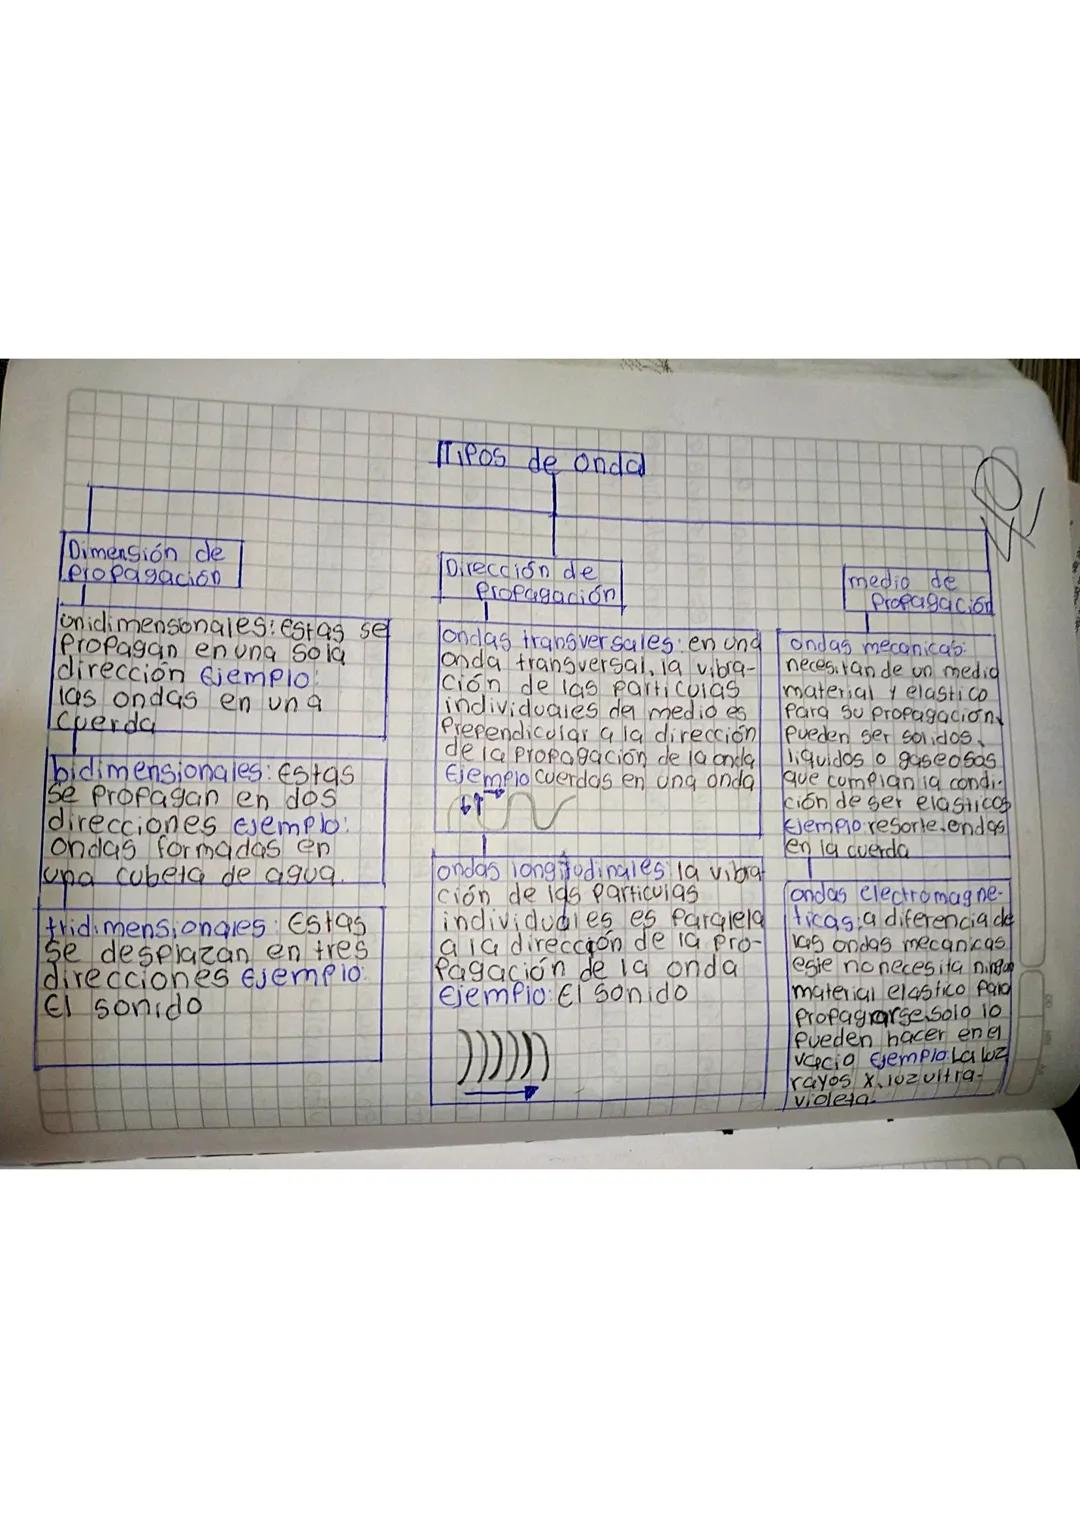 Tipos de onda
Dimensión de
propagación
unidimensonales: estas se
propagan en una sola
dirección Ejemplo:
las ondas en una
cuerda
bidimensionales: Estas
se propagan en dos
direcciones ejemplo:
ondas formadas en
una cubeta de agua.
tridimensionales: Estas
se desplazan en tres
direcciones Ejemplo:
El sonido
Dirección de
propagación
ondas transversales: en una
onda transversal, la vibra-
ción de las particulas
individuales del medio es
prependicular a la dirección
de la propagación de la onda
Ejemplo cuerdas en una onda
ondas longitudinales: la vibra
ción de las particulas
individuales es paralela
a la dirección de la pro-
pagación de la onda
Ejemplo: El sonido
medio de
propagación
ondas mecanicas:
necesitan de un medio
material y elastico
para su propagación,
pueden ser solidos,
liquidos o gaseosas
que cumplan la condi-
ción de ser elasticos
Ejemplo: resorte, endas
en la cuerda
ondas electromagne-
ticas: a diferencia de
las ondas mecanicas
este no necesita ningun
material elastico para
propagrarse, solo lo
pueden hacer en el
vacio Ejemplo: La luz
rayos x, luz ultra-
violeta.